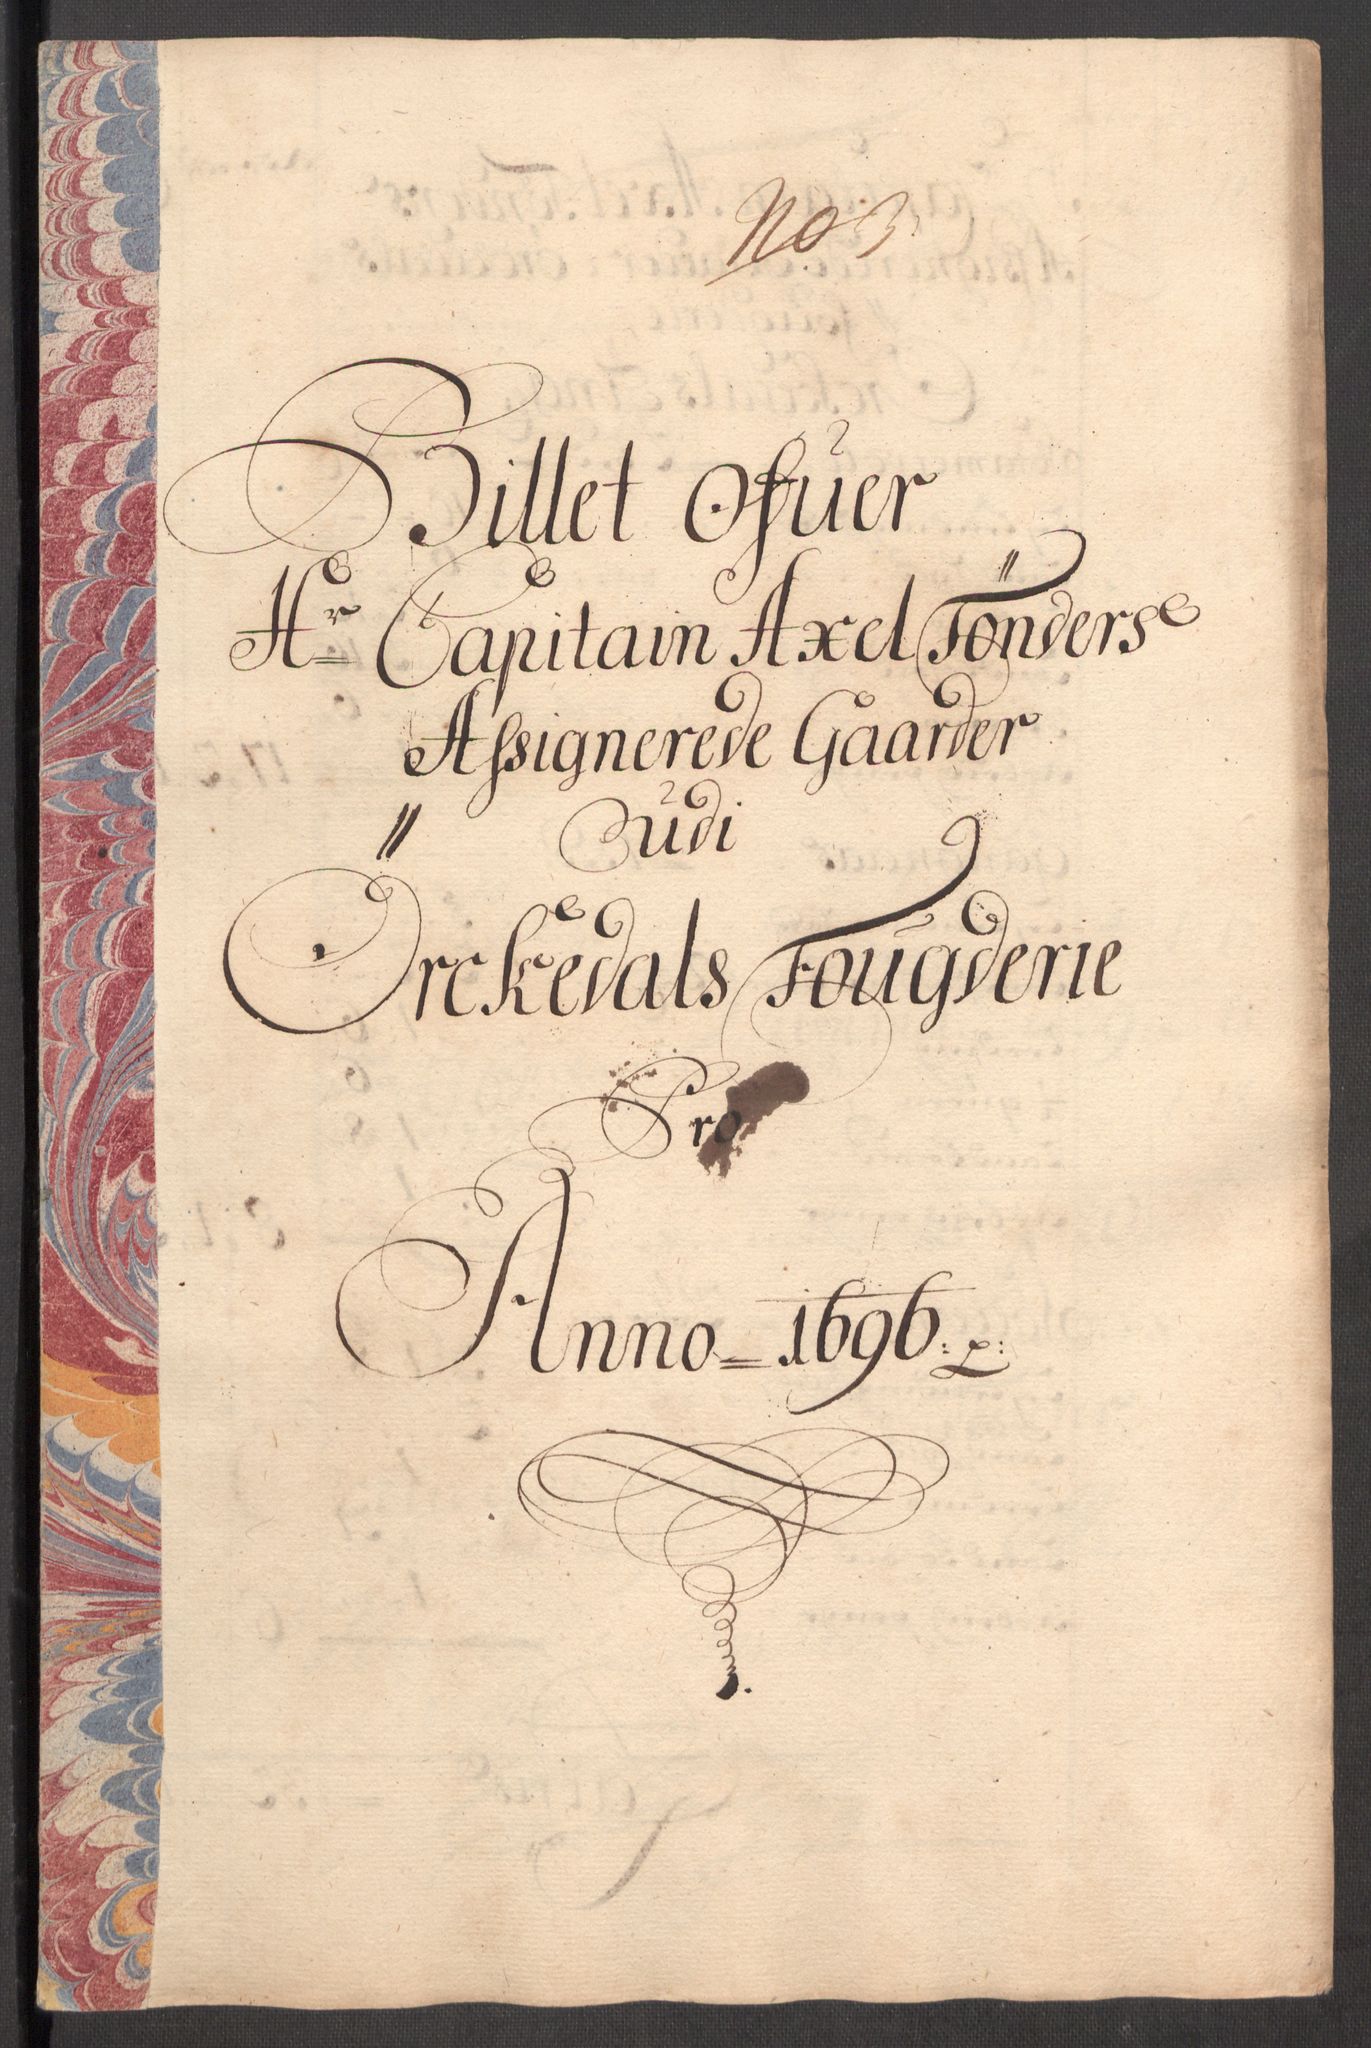 No 3
Billet Ofuer
Hr Capitain Axel Tönders
Assignerede Gaarder
Udi
Örckedals Fougderie
Pro
Anno 1696